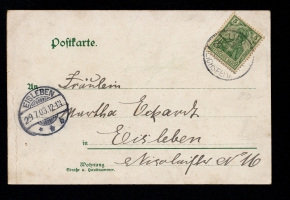 Postkarte.
An Fräulein
EISLEBEN
29.7.03.12-1N.
Martha Eckardt
in Eisleben
Wohnung
Straße u. Hausnummer.